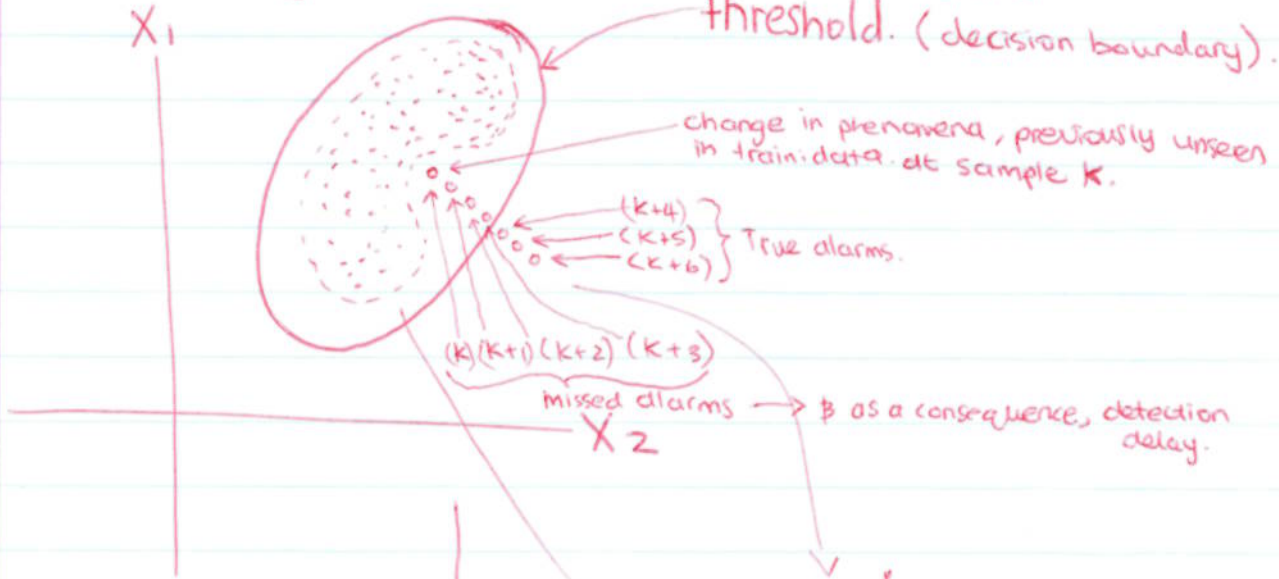 X1
threshold. (decision boundary).
change in phenomena, previously unseen
in train.data. at sample K.
(K+4)
(K+5)
(K+6)
True alarms.
(K) (K+1) (K+2) (K+3)
missed alarms → as a consequence, detection
delay.
X2